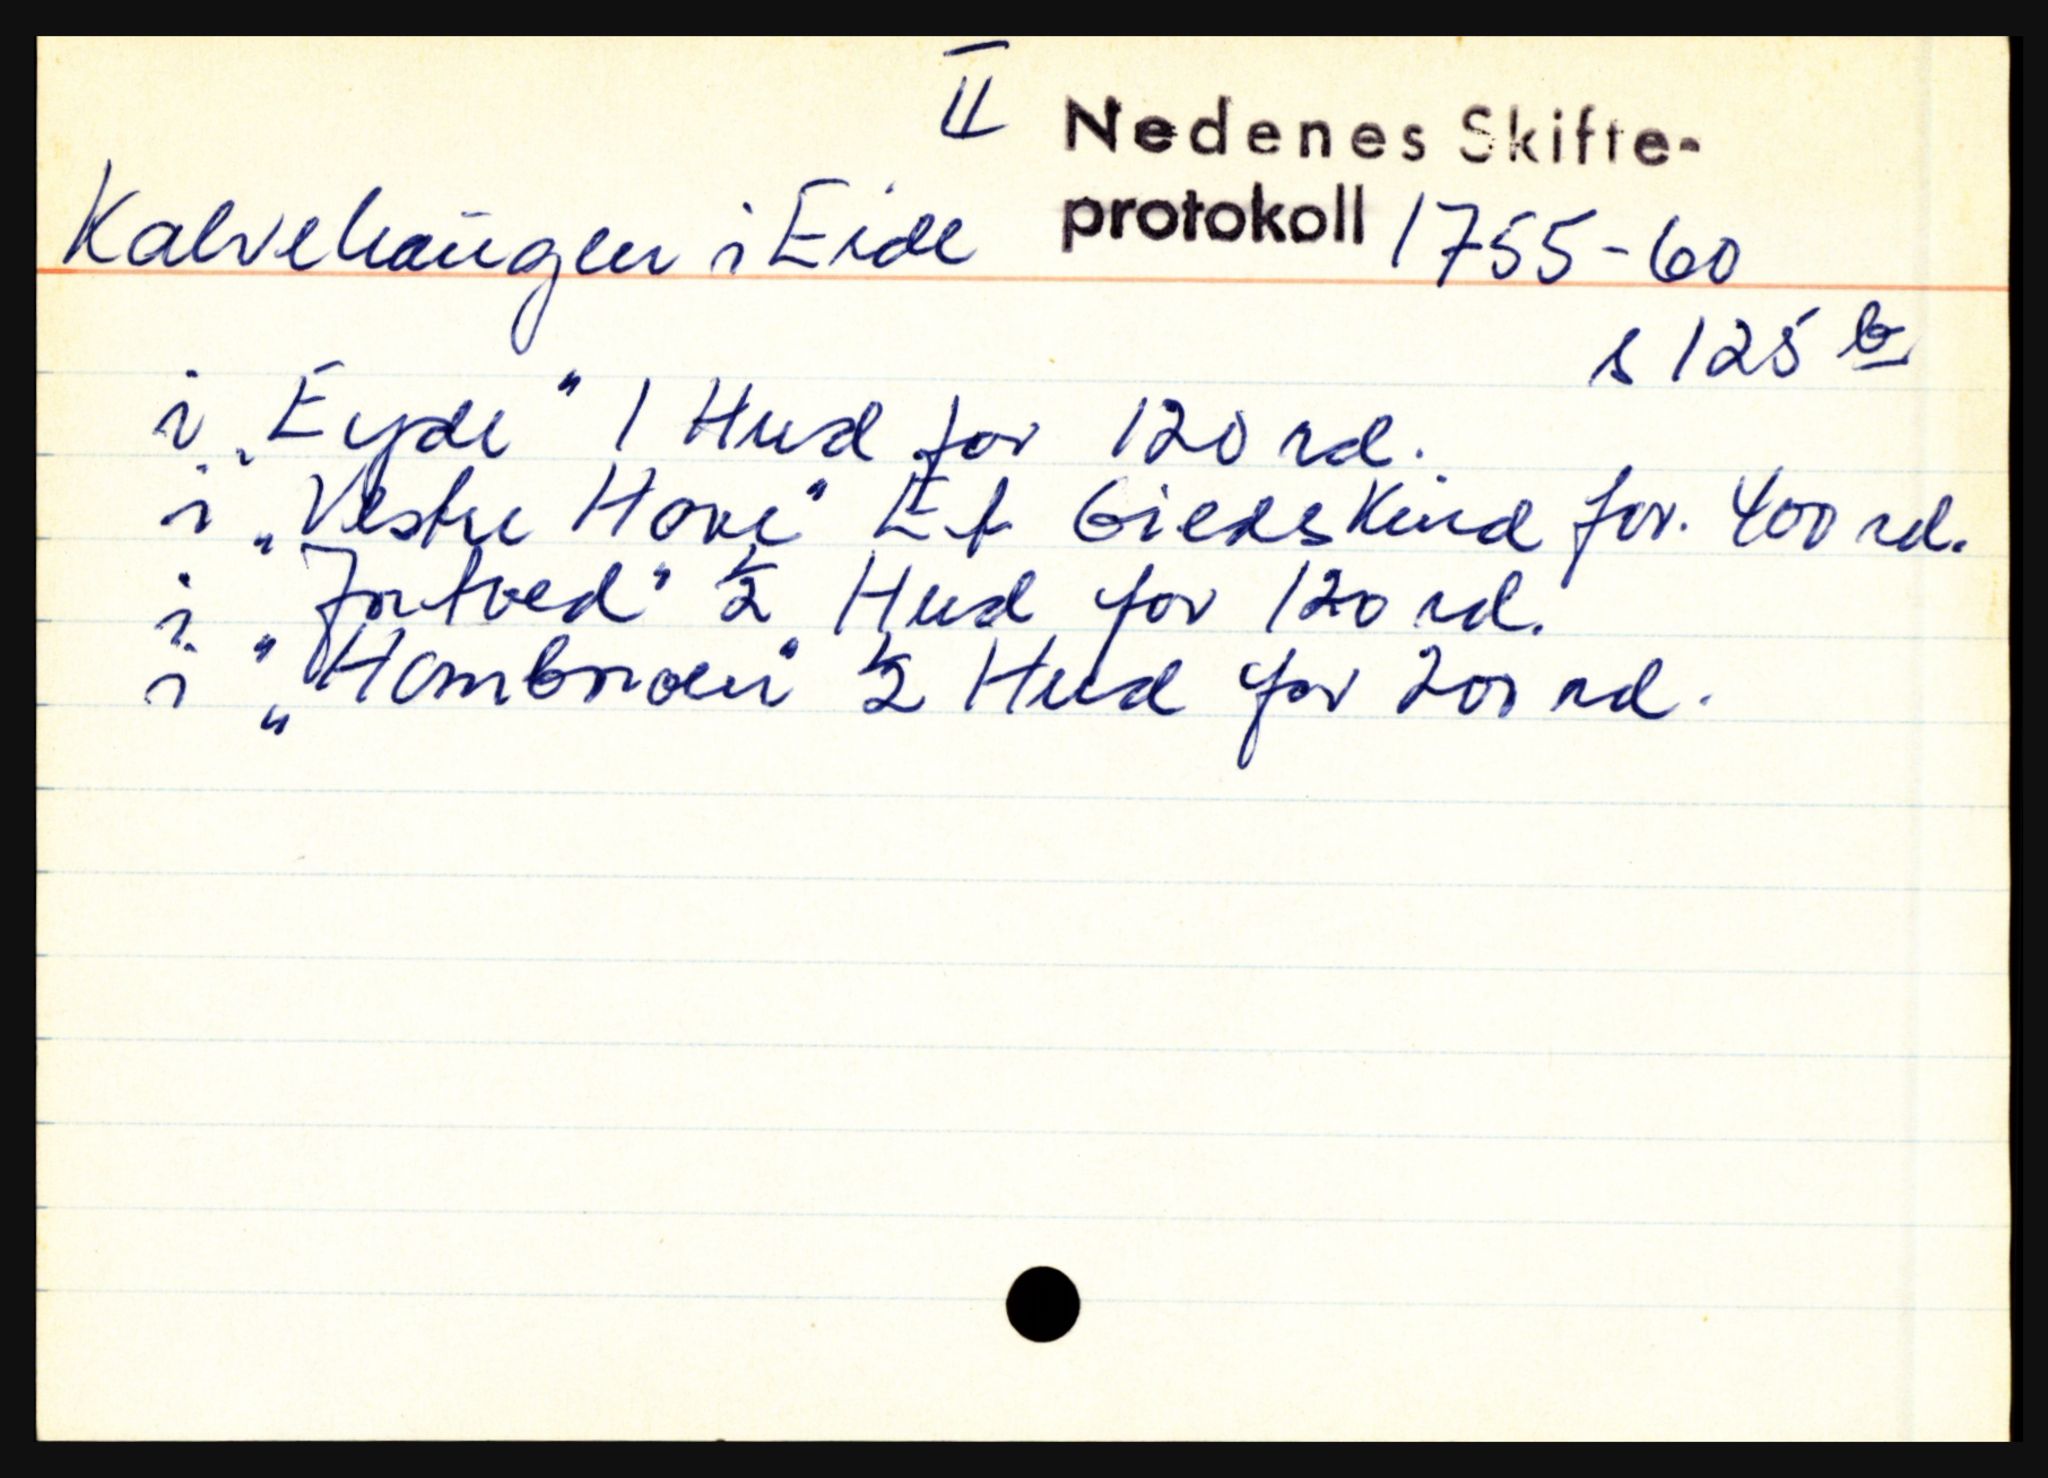 II
Nedenes Skifte-
Kalvehaugen i Eide protokoll 1755-60
s 125 b
i "Eyde" 1 Hud for 120 rd.
i "Vestre Hove" Et Giedskind for. 400 rd.
i "Jortved" ½ Hud for 120 rd.
i "Hombroen" ½ Hud for 200 rd.